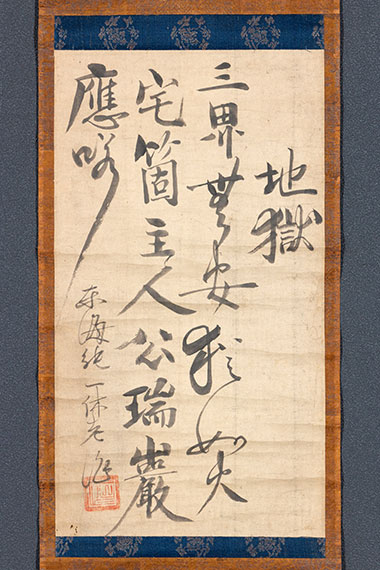 地獄
三界無安猶如火
宅箇主人公瑞巖
應喏
東海純一休老漁